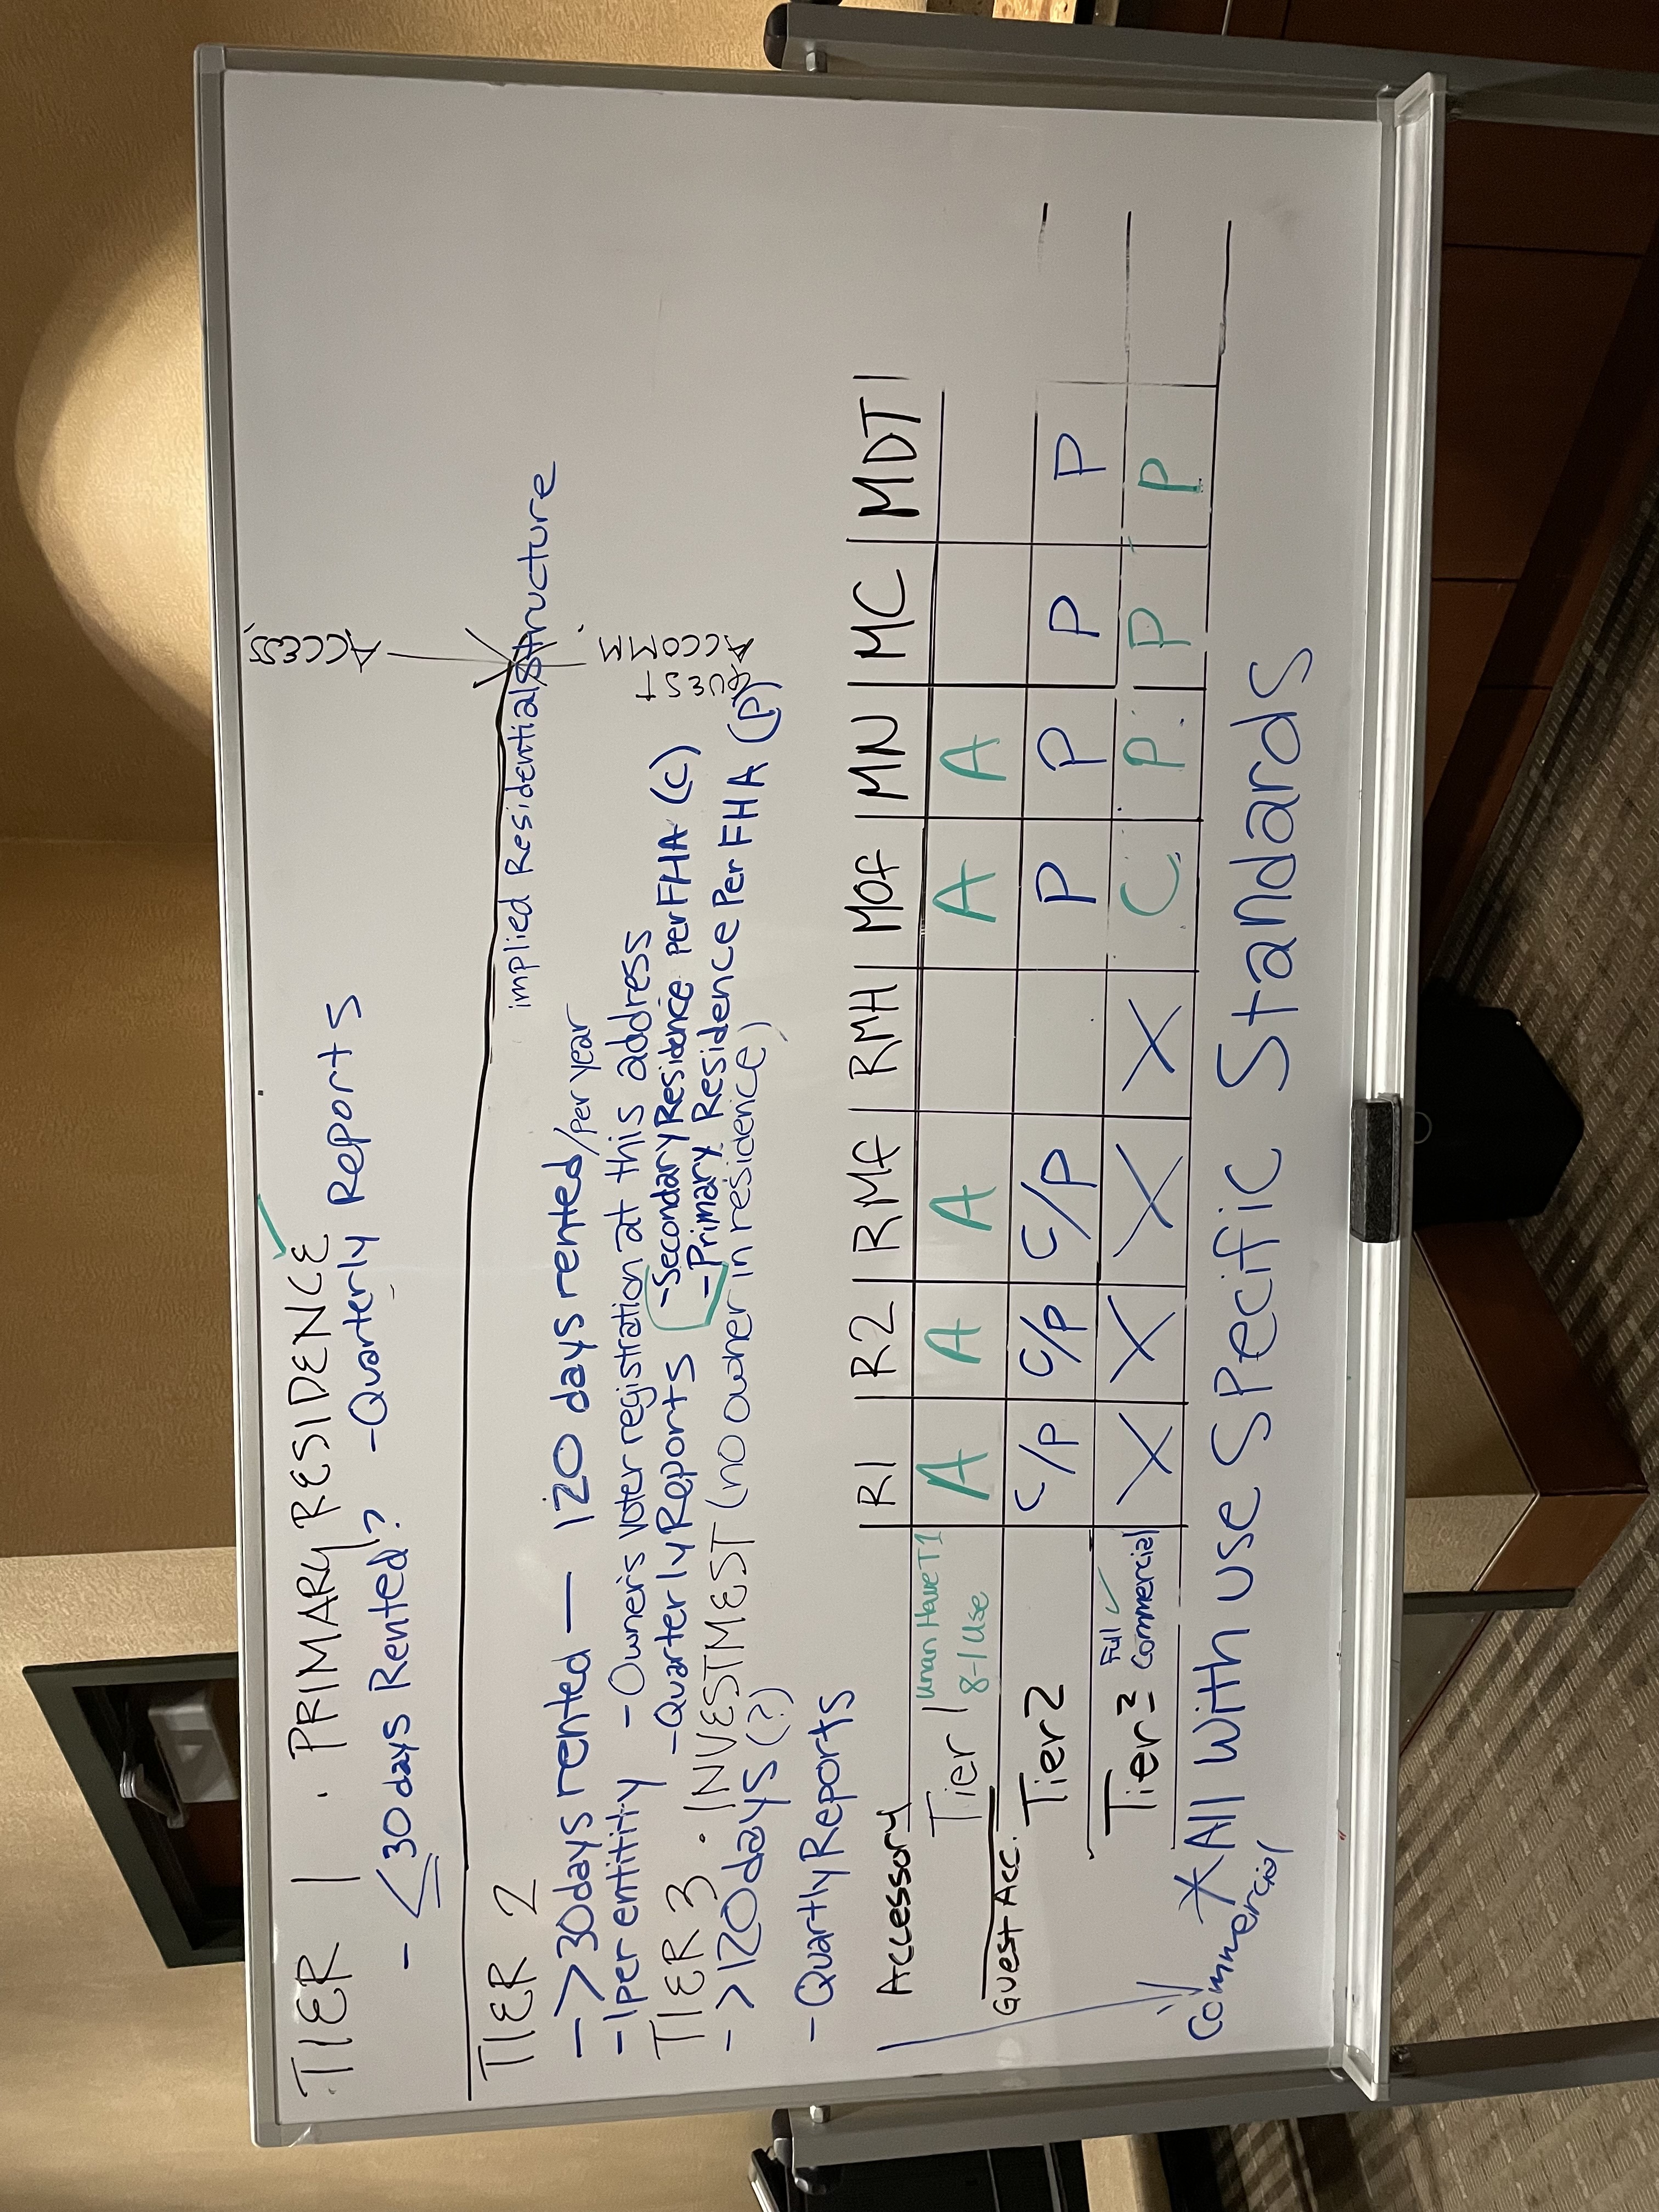 TIER 1 · PRIMARY RESIDENCE
- ≤ 30 days Rented? - Quarterly Reports
ACCESS.
TIER 2
implied Residential Structure
GUEST
ACCOMM
- >30 days rented — 120 days rented/per year
- 1 per entitity - Owner's voter registration at this address
- Quarterly Reports - Secondary Residence per FHA (C)
- Primary Residence Per FHA (P)
TIER 3 · INVESTMEST (no owner in residence)
- >120 days (?)
- Quartly Reports
Accessory R1 | R2 | RMF | RMH | MOF | MN | MC | MDT |
Tier 1 Have T1 8-1 Use A A A A A
Guest Acc.
Tier 2 C/P C/P C/P P P P P
Tier 3 Full Commercial X X X X C P P P
Commercial
* All With use Specific Standards